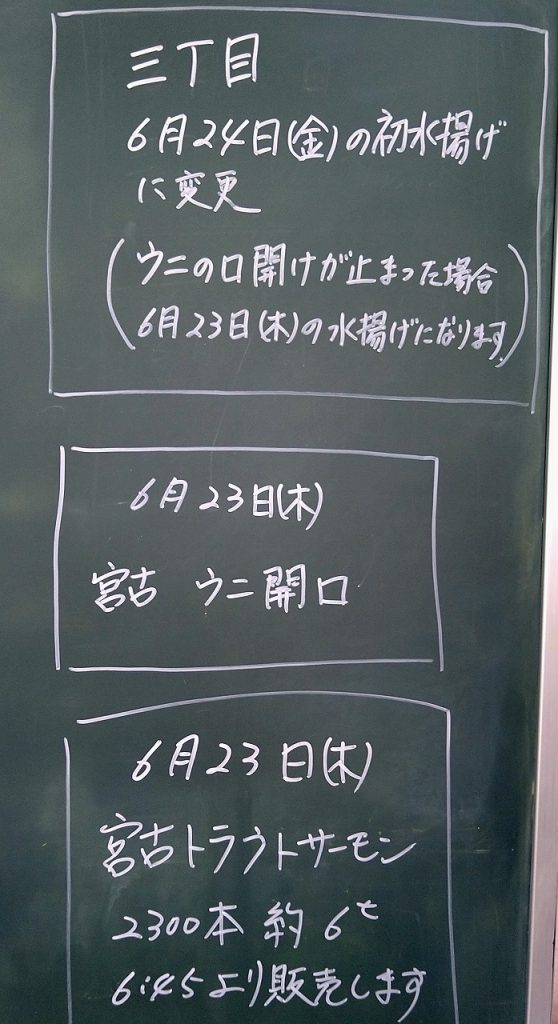 三丁目
6月24日(金)の初水揚げ
に変更
(ウニの口開けが止まった場合
6月23日(木)の水揚げになります)
6月23日(木)
宮古 ウニ開口
6月23日(木)
宮古トラウトサーモン
2300本 約6t
6:45より販売します